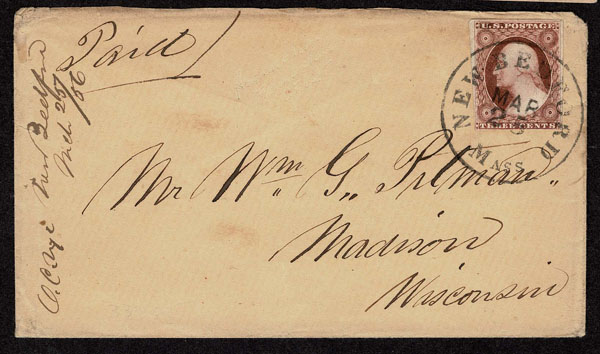 Paid
U.S. POSTAGE
THREE CENTS
NEW BEDFORD
MAR
25
MASS
Mr Wm G. Pitman.
Madison
Wisconsin
New Bedford
Mch 25/
/56